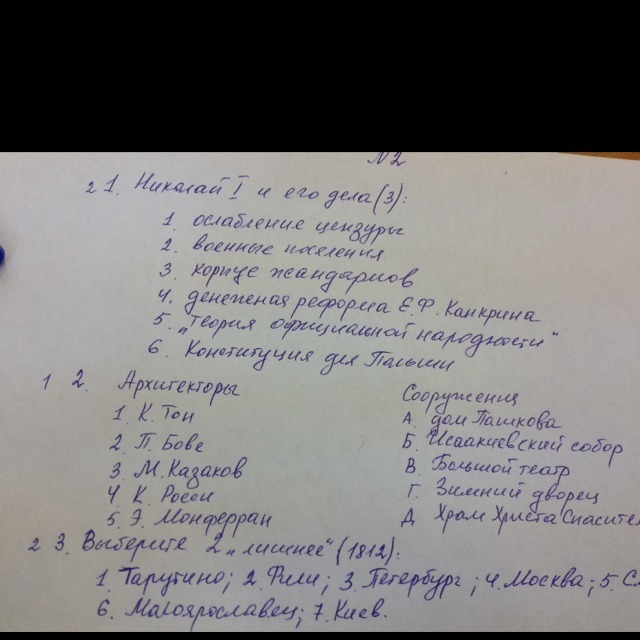 №2
2 1. Николай I и его дела (3):
1. ослабление цензуры
2. военные поселения
3. корпус жандармов
4. денежная реформа Е.Ф. Канкрина
5. „Теория официальной народности“
6. Конституция для Польши
1 2. Архитекторы
1. К. Тон
2. П. Бове
3. М. Казаков
4 К. Росси
5. Э. Монферран
Сооружения
А. дом Пашкова
Б. Исаакиевский собор
В. Большой театр
Г. Зимний дворец
Д Храм Христа Спасител
2 3. Выберите 2 „лишнее“ (1812):
1. Тарутино; 2. Фили; 3. Петербург; 4. Москва; 5.
6. Малоярославец; 7. Киев.